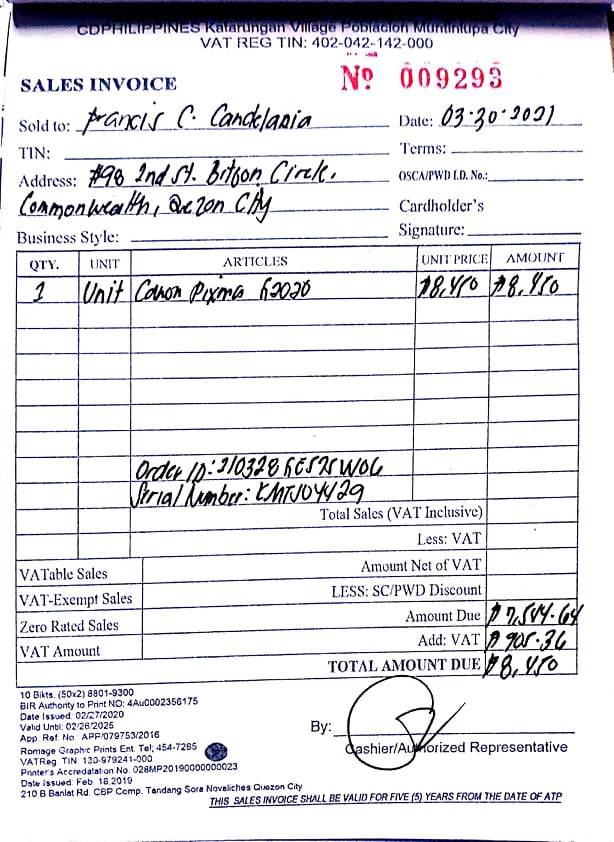 CDPHILIPPINES Katarungan Village Poblacion Muntinlupa City
VAT REG TIN: 402-042-142-000
SALES INVOICE Nº 009293
Sold to: Francis C. Candelaria Date: 03-30-2021
TIN: Terms:
Address: #98 2nd St. Bitson Circle, OSCA/PWD I.D. No.:
Commonwealth, Quezon City Cardholder's
Business Style: Signature:
QTY. UNIT ARTICLES UNIT PRICE AMOUNT
1 Unit Canon Pixma G2020 ₱8,450 ₱8,450
Order ID: 210328
Serial Number:
Total Sales (VAT Inclusive)
Less: VAT
VATable Sales Amount Net of VAT
VAT-Exempt Sales LESS: SC/PWD Discount
Zero Rated Sales Amount Due ₱7,544.64
VAT Amount Add: VAT ₱905.36
TOTAL AMOUNT DUE ₱8,450
10 Bikts. (50x2) 8801-9300
BIR Authority to Print NO: 4Au0002356175
Date Issued: 02/27/2020
Valid Until: 02/26/2025
App. Ref. No. APP/079753/2016
Romage Graphic Prints Ent. Tel; 454-7265
VATReg. TIN. 130-979241-000
Printer's Accredatation No. 028MP20190000000023
Date Issued: Feb. 18,2019
210 B Banlat Rd. CBP Comp. Tandang Sora Novaliches Quezon City
By:
Cashier/Authorized Representative
THIS SALES INVOICE SHALL BE VALID FOR FIVE (5) YEARS FROM THE DATE OF ATP